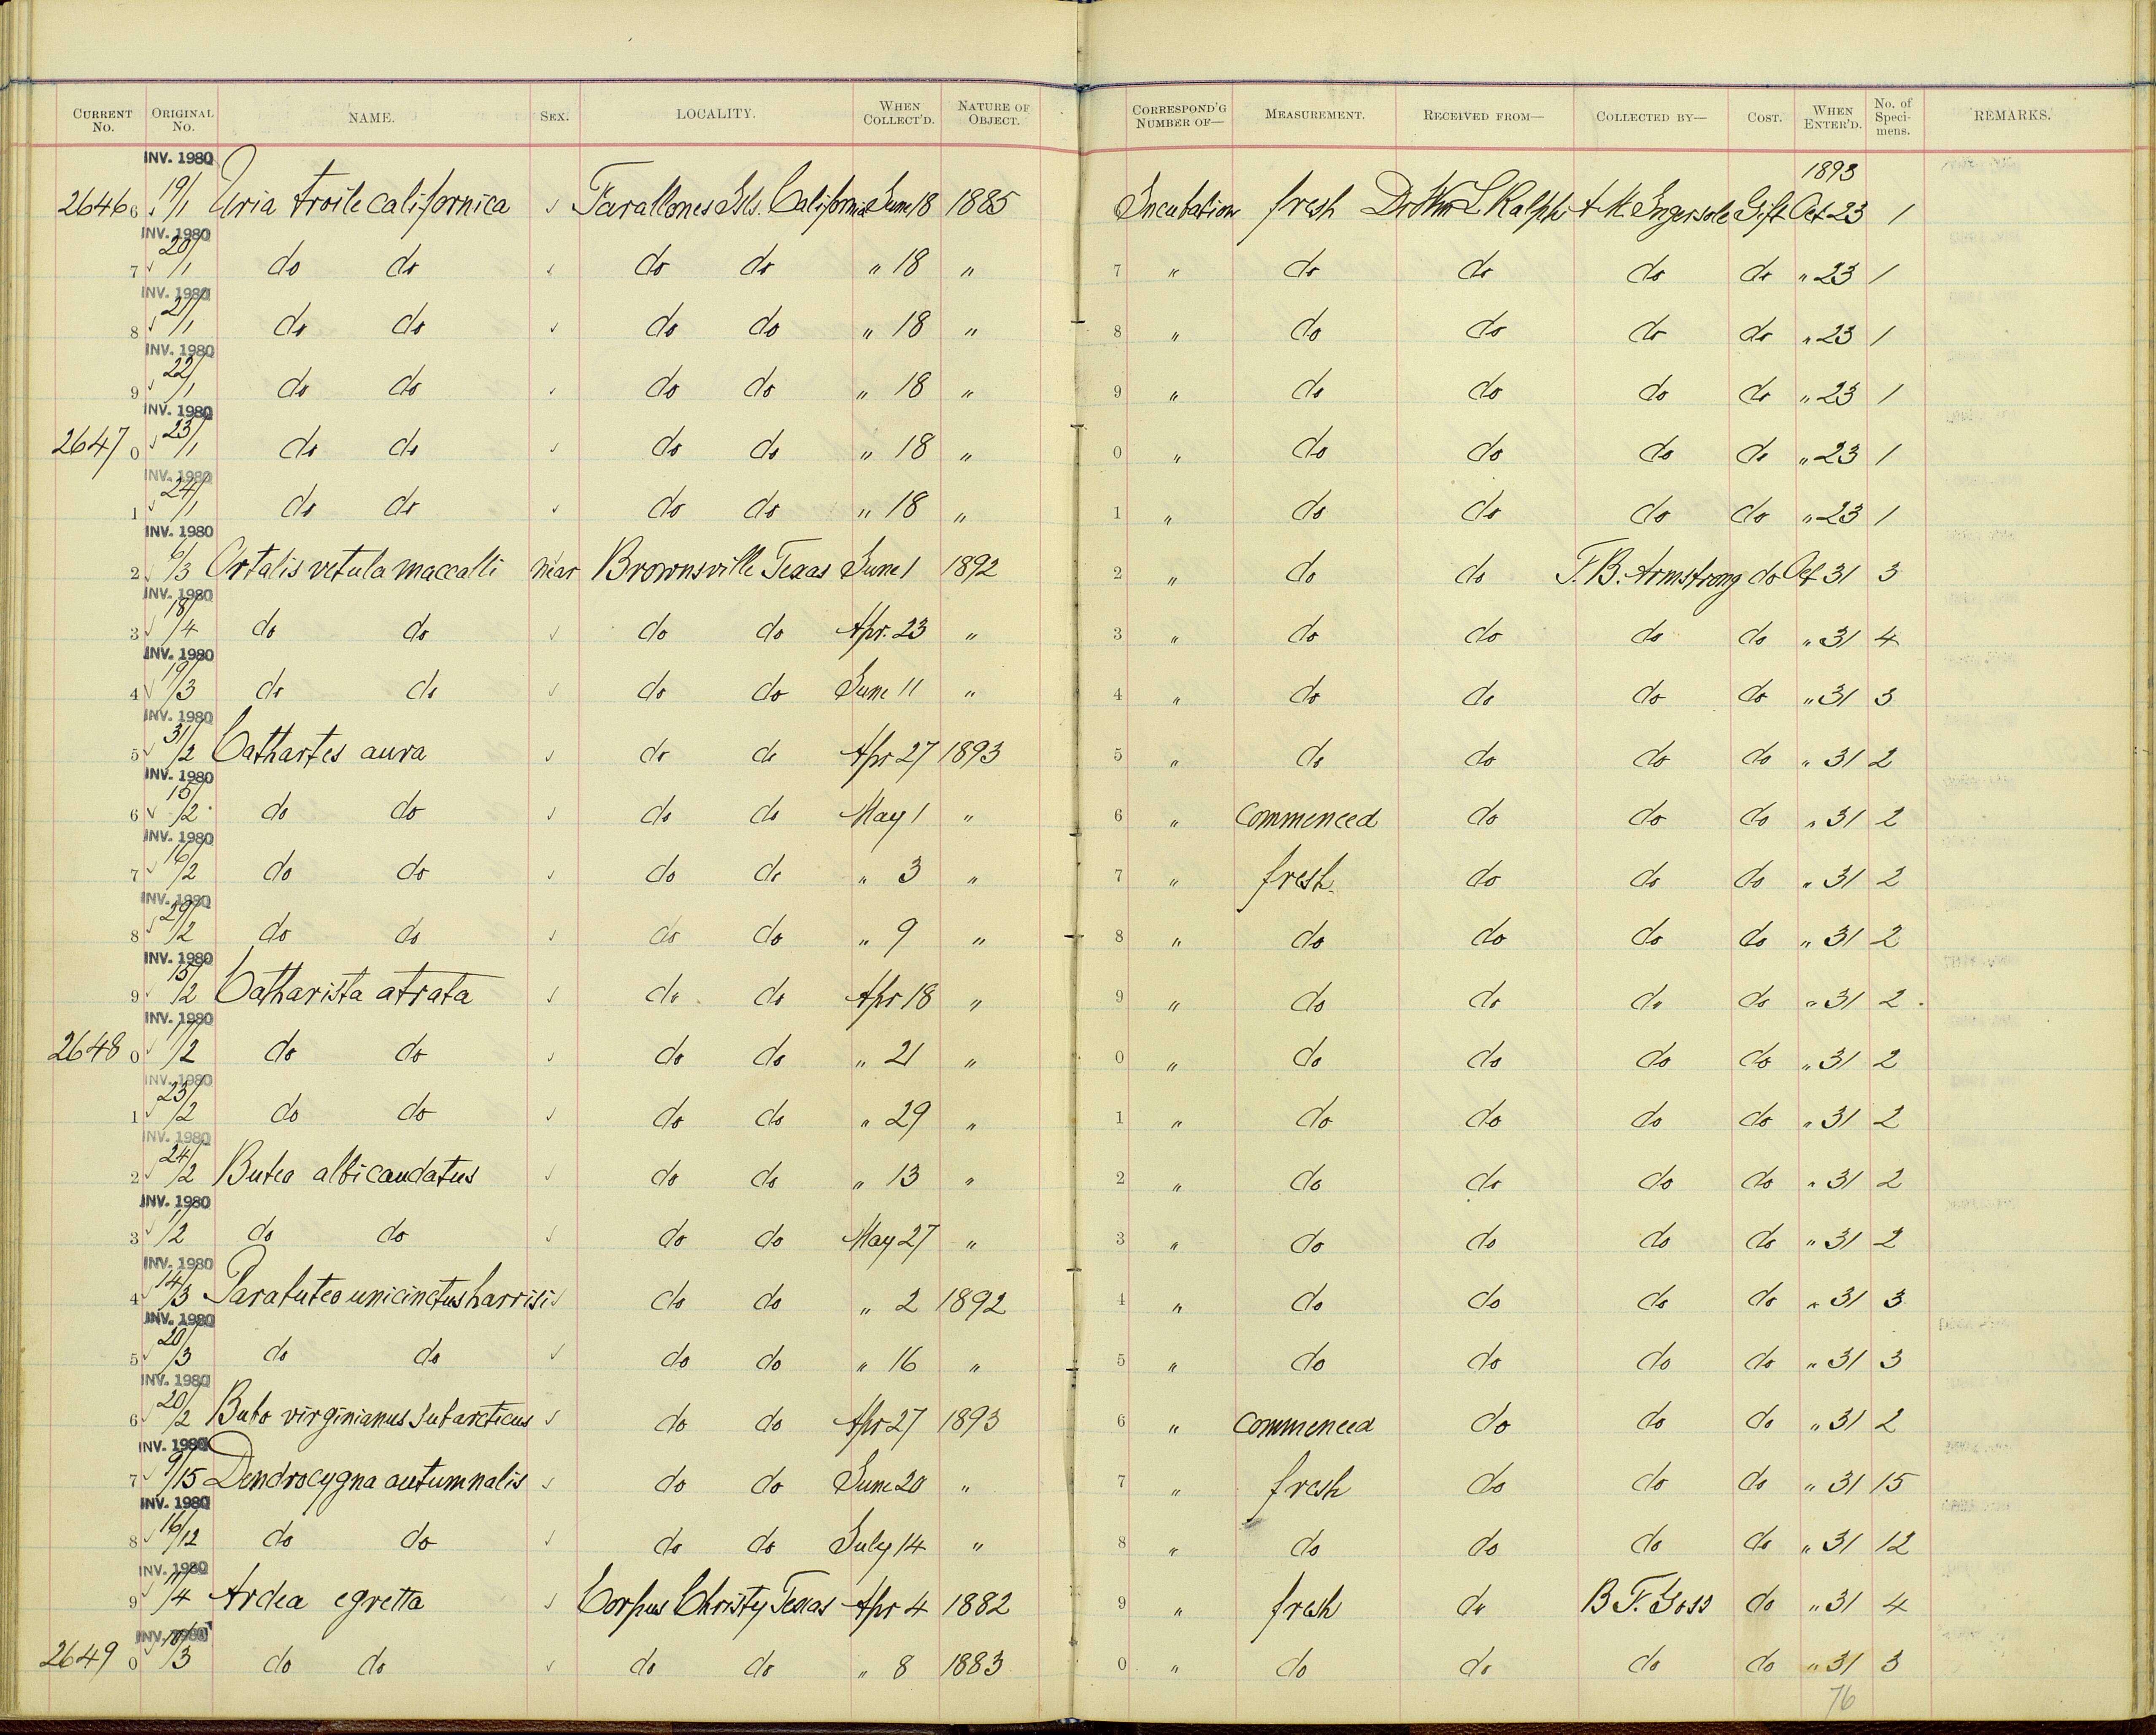 CURRENT No. ORIGINAL No. NAME. SEX. LOCALITY. WHEN COLLECT'D. NATURE OF OBJECT. CORRESPOND'G NUMBER OF— MEASUREMENT. RECEIVED FROM— COLLECTED BY— COST. WHEN ENTER'D. No. of Specimens. REMARKS.
INV. 1980 1893
2646 6 ✓ 19/1 Uria troile californica ✓ Farallones Isls. California June 18 1885 Incubation fresh Dr Wm L Ralph A. M. Ingersole Gift Oct 23 1
INV. 1980
7 ✓ 20/1 do do ✓ do do " 18 " 7 " do do do do " 23 1
INV. 1980
8 ✓ 21/1 do do ✓ do do " 18 " 8 " do do do do " 23 1
INV. 1980
9 ✓ 22/1 do do ✓ do do " 18 " 9 " do do do do " 23 1
INV. 1980
2647 0 ✓ 23/1 do do ✓ do do " 18 " 0 " do do do do " 23 1
INV. 1980
1 ✓ 24/1 do do ✓ do do " 18 " 1 " do do do do " 23 1
INV. 1980
2 ✓ 6/3 Ortalis vetula maccalli near Brownsville Texas June 1 1892 2 " do do F. B. Armstrong do Oct 31 3
INV. 1980
3 ✓ 18/4 do do ✓ do do Apr. 23 " 3 " do do do do " 31 4
INV. 1980
4 ✓ 19/3 do do ✓ do do June 11 " 4 " do do do do " 31 3
INV. 1980
5 ✓ 31/2 Cathartes aura ✓ do do Apr 27 1893 5 " do do do do " 31 2
INV. 1980
6 ✓ 15/2 do do ✓ do do May 1 " 6 " commenced do do do " 31 2
INV. 1980
7 ✓ 16/2 do do ✓ do do " 3 " 7 " fresh do do do " 31 2
INV. 1980
8 ✓ 29/2 do do ✓ do do " 9 " 8 " do do do do " 31 2
INV. 1980
9 ✓ 15/2 Catharista atrata ✓ do do Apr 18 " 9 " do do do do " 31 2
INV. 1980
2648 0 ✓ 17/2 do do ✓ do do " 21 " 0 " do do do do " 31 2
INV. 1980
1 ✓ 23/2 do do ✓ do do " 29 " 1 " do do do do " 31 2
INV. 1980
2 ✓ 24/2 Buteo albicaudatus ✓ do do " 13 " 2 " do do do do " 31 2
INV. 1980
3 ✓ 1/2 do do ✓ do do May 27 " 3 " do do do do " 31 2
INV. 1980
4 ✓ 14/3 Parabuteo unicinctus harrisi ✓ do do " 2 1892 4 " do do do do " 31 3
INV. 1980
5 ✓ 20/3 do do ✓ do do " 16 " 5 " do do do do " 31 3
INV. 1980
6 ✓ 20/2 Bubo virginianus subarcticus ✓ do do Apr 27 1893 6 " commenced do do do " 31 2
INV. 1980
7 ✓ 9/15 Dendrocygna autumnalis ✓ do do June 20 " 7 " fresh do do do " 31 15
INV. 1980
8 ✓ 16/12 do do ✓ do do July 14 " 8 " do do do do " 31 12
INV. 1980
9 ✓ 17/4 Ardea egretta ✓ Corpus Christy Texas Apr 4 1882 9 " fresh do B. F. Goss do " 31 4
INV. 1980
2649 0 ✓ 18/3 do do ✓ do do " 8 1883 0 " do do do do " 31 3
76